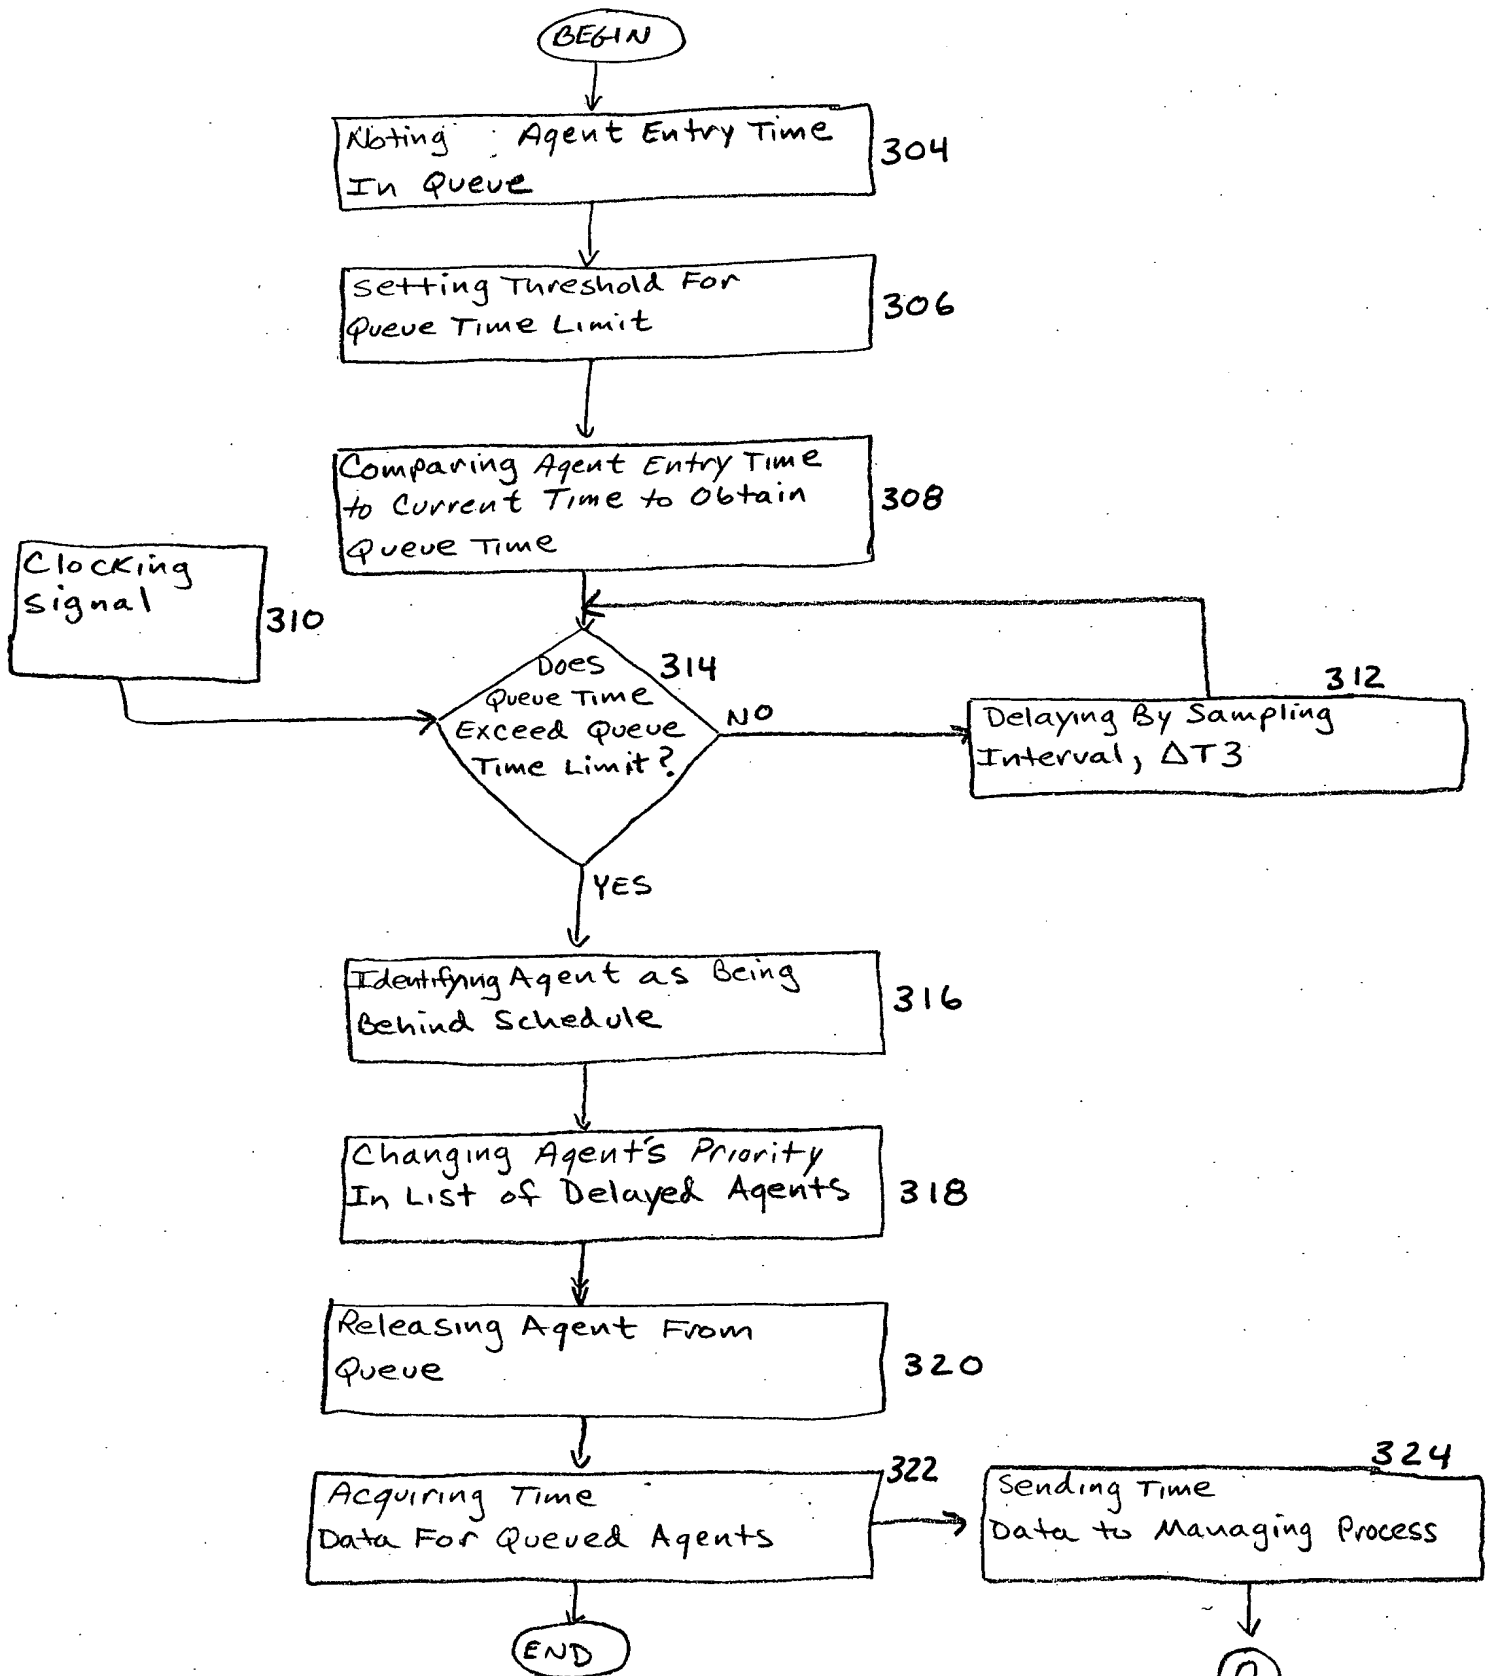 BEGIN
Noting Agent Entry Time
In Queue
304
Setting Threshold For
Queue Time Limit
306
Comparing Agent Entry Time
to Current Time to Obtain
Queue Time
308
Clocking
Signal
310
Does
Queue Time
Exceed Queue
Time Limit?
314
NO
312
Delaying By Sampling
Interval, ΔT3
YES
Identifying Agent as Being
Behind Schedule
316
Changing Agent's Priority
In List of Delayed Agents
318
Releasing Agent From
Queue
320
Acquiring Time
Data For Queued Agents
322
324
Sending Time
Data to Managing Process
END